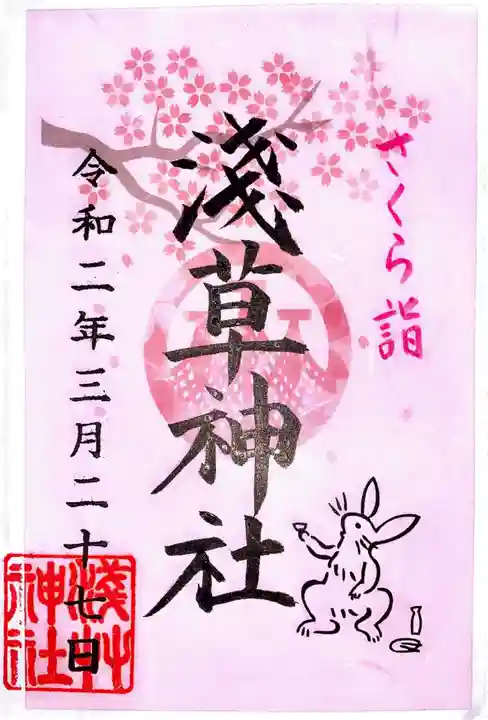 さくら詣
淺草神社
令和二年三月二十七日
淺草
神社